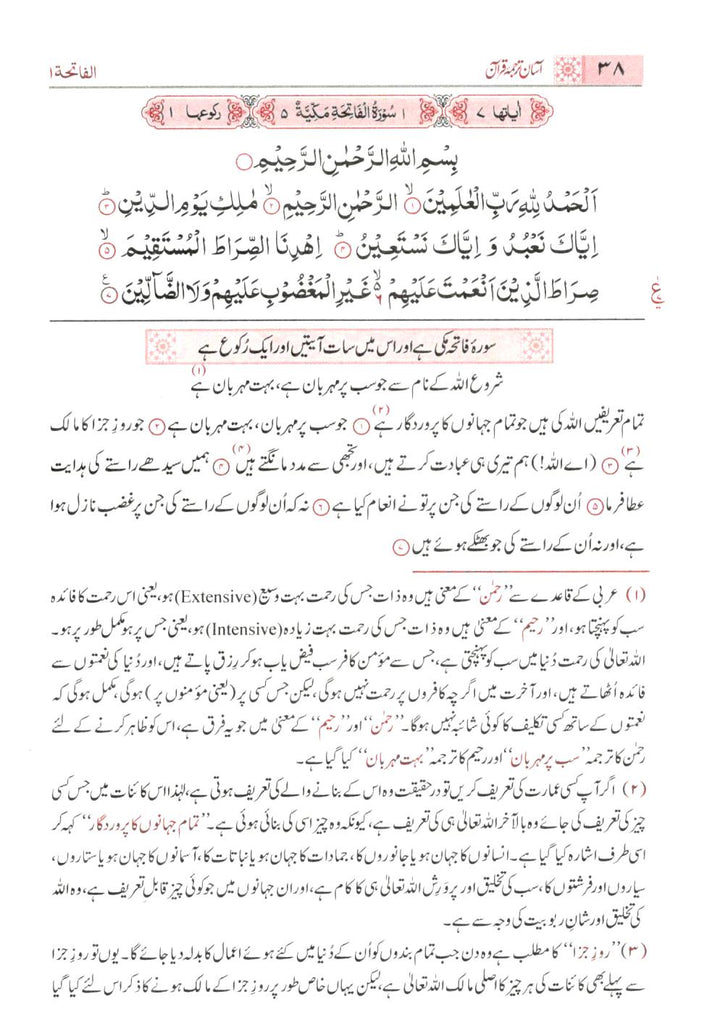 ۳۸ آسان ترجمۂ قرآن الفاتحۃ ۱
اٰیاتها ۷ ۱ سُوْرَةُ الْفَاتِحَةِ مَكِّيَّةٌ ۵ رکوعها ۱
بِسْمِ اللّٰهِ الرَّحْمٰنِ الرَّحِیْمِ ○
اَلْحَمْدُ لِلّٰهِ رَبِّ الْعٰلَمِیْنَ ۙ﴿۱﴾ الرَّحْمٰنِ الرَّحِیْمِ ۙ﴿۲﴾ مٰلِكِ یَوْمِ الدِّیْنِ ؕ﴿۳﴾
اِیَّاكَ نَعْبُدُ وَ اِیَّاكَ نَسْتَعِیْنُ ؕ﴿۴﴾ اِهْدِنَا الصِّرَاطَ الْمُسْتَقِیْمَ ۙ﴿۵﴾
صِرَاطَ الَّذِیْنَ اَنْعَمْتَ عَلَیْهِمْ ۙ۬۶ غَیْرِ الْمَغْضُوْبِ عَلَیْهِمْ وَلَا الضَّآلِّیْنَ ﴿۷﴾ ع
سورۂ فاتحہ مکی ہے اور اس میں سات آیتیں اور ایک رُکوع ہے
شروع اللہ کے نام سے جو سب پر مہربان ہے، بہت مہربان ہے (۱)
تمام تعریفیں اللہ کی ہیں جو تمام جہانوں کا پروردگار ہے (۲) ﴿۱﴾ جو سب پر مہربان، بہت مہربان ہے ﴿۲﴾ جو روزِ جزا کا مالک
ہے (۳) ﴿۳﴾ (اے اللہ!) ہم تیری ہی عبادت کرتے ہیں، اور تجھی سے مدد مانگتے ہیں (۴) ﴿۴﴾ ہمیں سیدھے راستے کی ہدایت
عطا فرما ﴿۵﴾ اُن لوگوں کے راستے کی جن پر تو نے انعام کیا ہے ﴿۶﴾ نہ کہ اُن لوگوں کے راستے کی جن پر غضب نازل ہوا
ہے، اور نہ اُن کے راستے کی جو بھٹکے ہوئے ہیں ﴿۷﴾
(۱) عربی کے قاعدے سے ”رحمٰن“ کے معنیٰ ہیں وہ ذات جس کی رحمت بہت وسیع (Extensive) ہو، یعنی اس رحمت کا فائدہ
سب کو پہنچتا ہو، اور ”رحیم“ کے معنیٰ ہیں وہ ذات جس کی رحمت بہت زیادہ (Intensive) ہو، یعنی جس پر ہو مکمل طور پر ہو۔
اللہ تعالیٰ کی رحمت دُنیا میں سب کو پہنچتی ہے، جس سے مؤمن کافر سب فیض یاب ہو کر رزق پاتے ہیں، اور دُنیا کی نعمتوں سے
فائدہ اُٹھاتے ہیں، اور آخرت میں اگرچہ کافروں پر رحمت نہیں ہوگی، لیکن جس کسی پر (یعنی مؤمنوں پر) ہوگی، مکمل ہوگی کہ
نعمتوں کے ساتھ کسی تکلیف کا کوئی شائبہ نہیں ہوگا۔ ”رحمٰن“ اور ”رحیم“ کے معنیٰ میں جو یہ فرق ہے، اس کو ظاہر کرنے کے لئے
رحمٰن کا ترجمہ ”سب پر مہربان“ اور رحیم کا ترجمہ ”بہت مہربان“ کیا گیا ہے۔
(۲) اگر آپ کسی عمارت کی تعریف کریں تو درحقیقت وہ اس کے بنانے والے کی تعریف ہوتی ہے، لہٰذا اس کائنات میں جس کسی
چیز کی تعریف کی جائے وہ بالآخر اللہ تعالیٰ ہی کی تعریف ہے، کیونکہ وہ چیز اسی کی بنائی ہوئی ہے۔ ”تمام جہانوں کا پروردگار“ کہہ کر
اسی طرف اشارہ کیا گیا ہے۔ انسانوں کا جہان ہو یا جانوروں کا، جمادات کا جہان ہو یا نباتات کا، آسمانوں کا جہان ہو یا ستاروں،
سیاروں اور فرشتوں کا، سب کی تخلیق اور پروَرِش اللہ تعالیٰ ہی کا کام ہے، اور ان جہانوں میں جو کوئی چیز قابلِ تعریف ہے، وہ اللہ
کی تخلیق اور شانِ ربوبیت کی وجہ سے ہے۔
(۳) ”روزِ جزا“ کا مطلب ہے وہ دن جب تمام بندوں کو اُن کے دُنیا میں کئے ہوئے اعمال کا بدلہ دیا جائے گا۔ یوں تو روزِ جزا
سے پہلے بھی کائنات کی ہر چیز کا اصلی مالک اللہ تعالیٰ ہے، لیکن یہاں خاص طور پر روزِ جزا کے مالک ہونے کا ذکر اس لئے کیا گیا